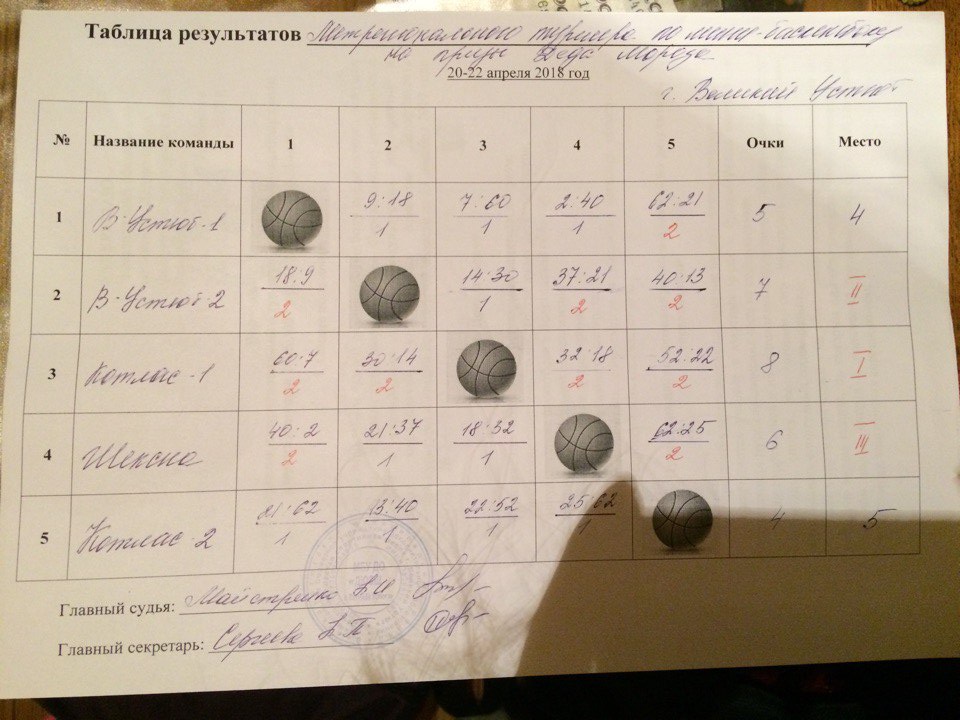 Таблица результатов Межрегионального турнира по мини-баскетболу
на призы Деда Мороза
20-22 апреля 2018 год
г. Великий Устюг
№ Название команды 1 2 3 4 5 Очки Место
1 В-Устюг-1 9:18 7:60 2:40 62:21 5 4
1 1 1 2
2 В-Устюг-2 18:9 14:30 37:21 40:13 7 II
2 1 2 2
3 Котлас-1 60:7 30:14 32:18 52:22 8 I
2 2 2 2
4 Шексна 40:2 21:37 18:32 62:25 6 III
2 1 1 2
5 Котлас-2 21:62 13:40 22:52 25:62 4 5
1 1 1 1
Главный судья: Майстренко
Главный секретарь: Сергеева Н.П